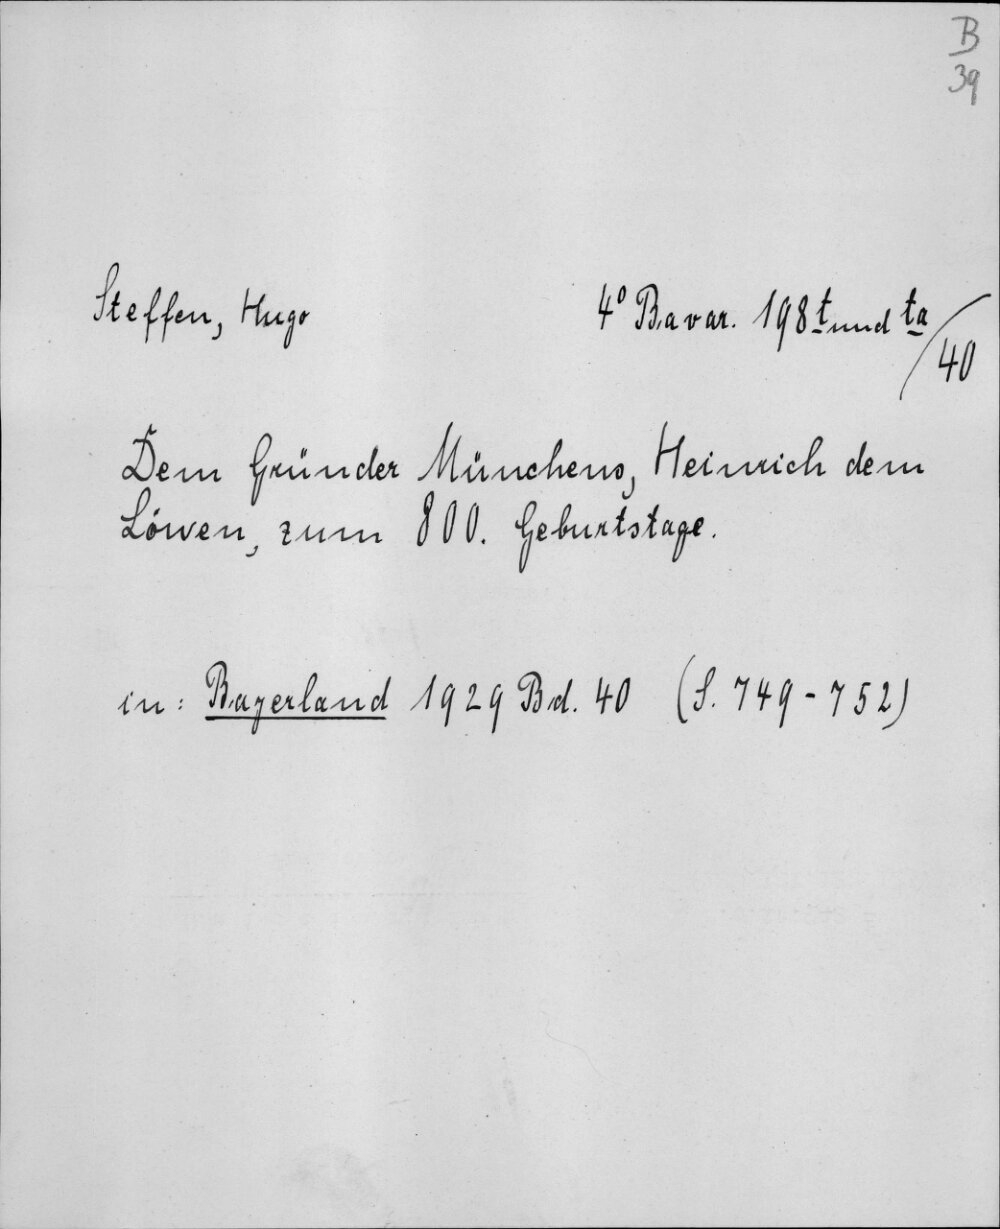 B
39
Steffen, Hugo 4° Bavar. 198 t und ta/40
Dem Gründer Münchens, Heinrich dem
Löwen, zum 800. Geburtstage.
in: Bayerland 1929 Bd. 40 (S. 749-752)